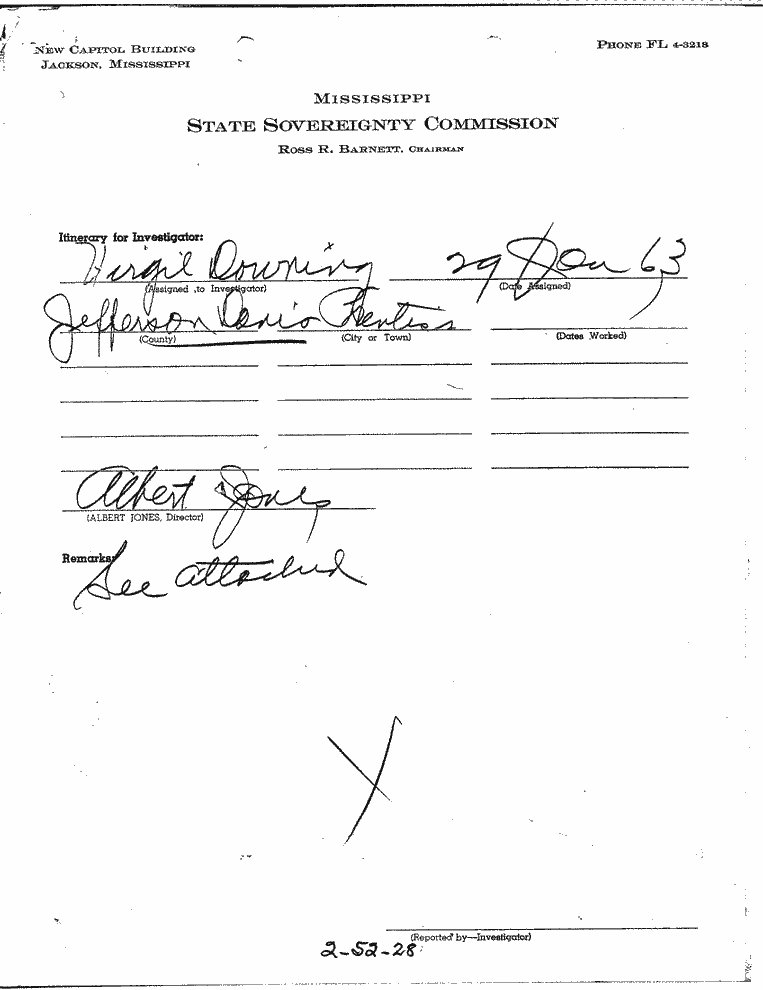 NEW CAPITOL BUILDING
JACKSON, MISSISSIPPI
PHONE FL 4-3218
MISSISSIPPI
STATE SOVEREIGNTY COMMISSION
ROSS R. BARNETT, CHAIRMAN
Itinerary for Investigator:
Virgil Downing 29 Jan 63
(Assigned to Investigator) (Date Assigned)
Jefferson Davis Prentiss
(County) (City or Town) (Dates Worked)
Albert Jones
(ALBERT JONES, Director)
Remarks:
See attached
(Reported by—Investigator)
2-52-28